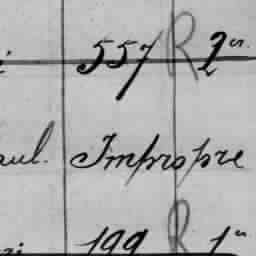 557 R 2es
aul. Impropre
199 R 1er